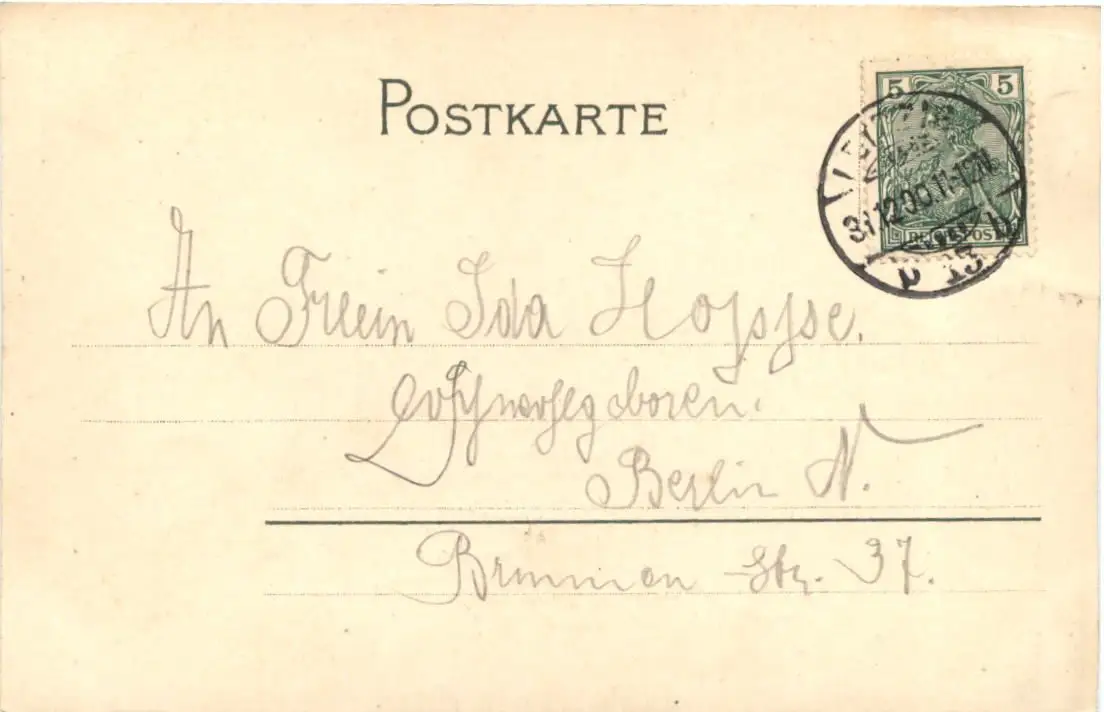 POSTKARTE
5 5
LEIPZIG
31.12.00.11-12N.
13 b
REICHSPOST
An Frlein Ida Hoppe.
Berlin N.
Brunnen-Str. 37.